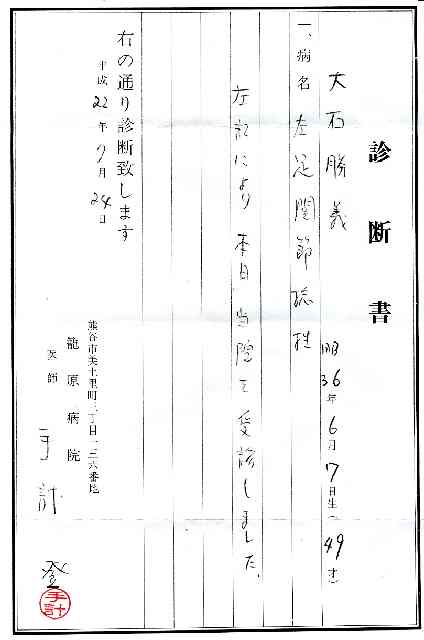 診断書
大石勝義 昭36年6月7日生 49才
一、病名 左足関節捻挫
右記により 本日 当院を受診しました。
右の通り診断致します
平成22年7月24日
熊谷市美土里町三丁目一三六番地
籠原病院
医師 手計 登
手計